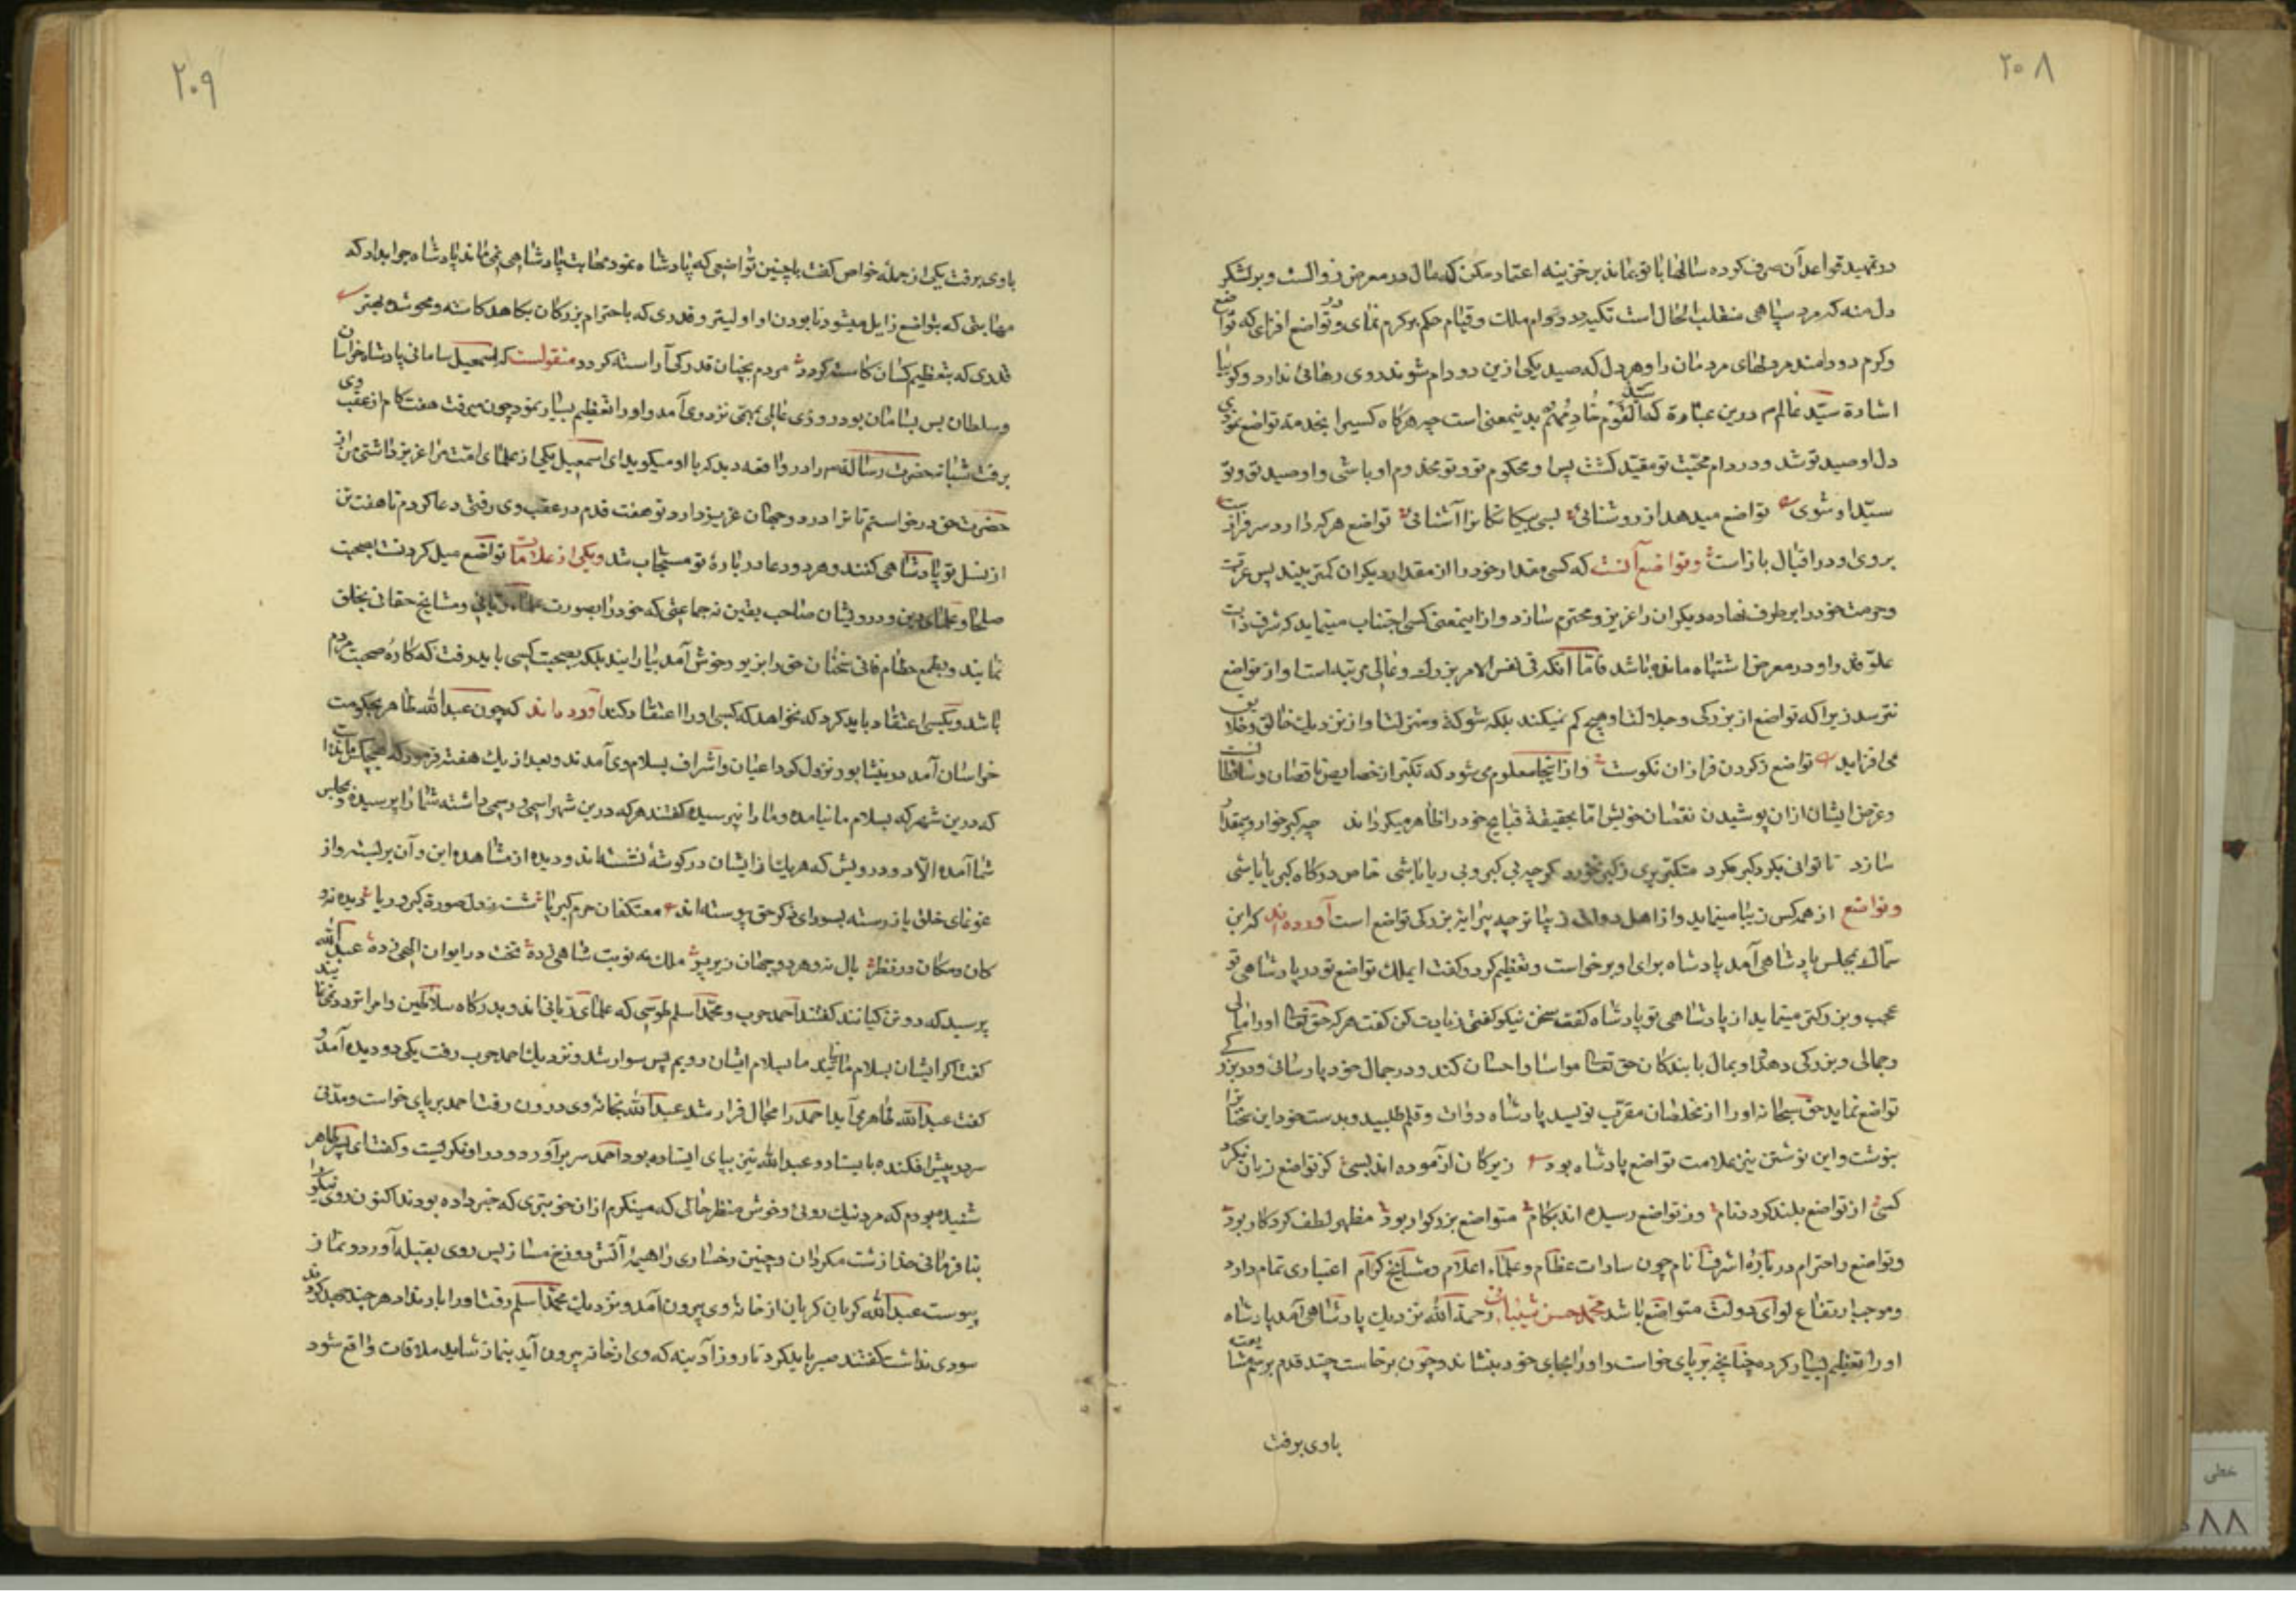 ۲۰۸
در تمهید قواعد آن صرف کرده سالها با تو بماند بر خزینه اعتماد مکن که مال در معرض زوالست و بر لشکر
دل منه که مرد سپاهی منقلب الحال است تکیه در دوام ملک و قیام حکم بر کرم نمای و در تواضع افزای که تواضع
وکرم دو دامند مر دلهای مردمان را و هر دل که صید یکی ازین دو دام شوند روی رهائی ندارد و کوئیا
اشارة سیّد عالم م درین عبارة که سیّد القوم خادمهم بدینمعنی است چه هرکاه کسیرا بخدمة تواضع نمودی
دل او صید تو شد و در دام محبّت تو مقیّد کشت پس او محکوم تو و تو مخدوم او باشی و او صید تو و تو
سیّد او شوی تواضع میدهد از روشنائی بسی بیکانکانرا آشنائی تواضع هرکه دارد سرفرازست
بروی او در اقبال بازاست وتواضع آنست که کسی مقدار خود را از مقدار دیکران کمتر بیند پس عزت
وحرمت خود را بر طرف نهاده دیکران را عزیز و محترم سازد و ازاینمعنی کسی اجتناب مینماید که شرف ذات
علوّ قدر او در معرض اشتباه مانده باشد فامّا آنکه در نفس الامر بزرك و عالی مرتبه است او از تواضع
نترسد زیرا که تواضع از بزرکی و جلالت او هیچ کم نمیکند بلکه شوکة و منزلت او از نزدیك خالق و خلایق
می افزاید تواضع ز کردن فرازان نکوست و از اینجا معلوم می شود که تکبّر از خصایص ناقصان و ساقطانست
وغرض ایشان ازان پوشیدن نقصان خویش امّا بحقیقة قبایح خود را ظاهر میکردانند چه کبر خوار و بیمقدار
سازد تا توانی بکرد کبر مکرد متکبّر بری ز کبر نخورد کر چه بی کبر و بی ریا باشی خاص درکاه کبریا باشی
وتواضع از همه کس زیبا مینماید و از اهل دولت زیباتر چه پیرایۀ بزرکی تواضع است آورده اند که ابن
سمّاك بمجلس پادشاهی آمد پادشاه برای او برخواست و تعظیم کرد و کفت ایملك تواضع تو در پادشاهی تو
عجب و بزرکتر مینماید از پادشاهی تو پادشاه کفت سخن نیکو کفتی زیادت کن کفت هرکه حق تعالی او را مالی
وجمالی و بزرکی دهد و او بمال با بندکان حق تعالی مواسا و احسان کند و در جمال خود پارسائی و در بزرکی
تواضع نماید حق سبحانه او را از مخلصان مقرّب نویسد پادشاه دوات و قلم طلبید و بدست خود این سخنانرا
بنوشت و این نوشتن نیز علامت تواضع پادشاه بود زیرکان آزموده اند بسی کز تواضع زیان نکرد
کسی از تواضع بلند کردد نام وز تواضع رسیده اند بکام متواضع بزرکوار بود مظهر لطف کردکار بود
وتواضع و احترام در بارۀ اشراف انام چون سادات عظام و علماء اعلام و مشایخ کرام اعتباری تمام دارد
وموجب ارتفاع لوای دولت متواضع باشد محمّد حسن شیبانی رحمة الله نزدیك پادشاهی آمد پادشاه
اورا تعظیم بسیار کرده چنانچه بر پای خواست و او را بجای خود بنشاند و چون برخاست چند قدم برسم مشایعت
باوی برفت
۲۰۹
باوی برفت یکی از جملۀ خواص کفت با چنین تواضعی که پادشاه نمود مهابت پادشاهی نمی ماند پادشاه جوابداد که
مهابتی که بتواضع زایل میشود نابودن او اولیتر و قدری که باحترام بزرکان بکاهد کاسته و محو شده بهتر
قدری که بتعظیم کسان کاسته کردد مردم بچنان قدر کی آراسته کردد منقولست که اسمعیل سامانی پادشاه خراسان
وسلطان بس بسامان بود روزی عالمی بمهمّی نزد وی آمد و او را تعظیم بسیار نمود چون میرفت هفت کام از عقب وی
برفت شبانه حضرت رسالة م را در واقعه دید که با او میکوید ای اسمعیل یکی از علمای امّت مرا عزیز داشتی من از
حضرت حق درخواستم تا ترا در دو جهان عزیز دارد و تو هفت قدم در عقب وی رفتی دعا کردم تا هفت تن
از نسل تو پادشاهی کنند و هر دو دعا در بارۀ تو مستجاب شد ویکی از علامات تواضع میل کردنست بصحبت
صلحا و علمای دین و درویشان صاحب یقین نه جماعتی که خود را بصورت علماء ربانی و مشایخ حقانی بخلق
نمایند و بطمع حطام فانی سخنان حق را بزیور خوش آمد بیارایند بلکه بصحبت کسی باید رفت که کارۀ صحبت مردم
باشد و بکسی اعتقاد باید کرد که نخواهد که کسی او را اعتقاد کند آورده اند که چون عبدالله طاهر بحکومت
خراسان آمد در نیشابور نزول کرد اعیان و اشراف بسلام وی آمدند و بعد از یك هفته فرمود که هیچکس مانده است
که درین شهر که بسلام ما نیامده و ما را نپرسیده کفتند هرکه درین شهر اسمی و رسمی داشته شما را پرسیده و بمجلس
شما آمده الّا دو درویش که هریك از ایشان در کوشۀ نشسته اند و دیده از مشاهده این و آن بربسته و از
غوغای خلق باز رسته بسودای ذکر حق پیوسته اند معتکفان حرم کبریا شسته ز دل صورة کبر و ریا دیده نه و
کان و مکان در نظر بال نه و هر دو جهان زیر پر ملك به نوبت شاهی زده تخت در ایوان الهی زده عبدالله
پرسید که دو تن کیانند کفتند احمد حرب و محمّد اسلم طوسی که علمای ربانی اند و بدرکاه سلاطین و امرا تردد نمی نمایند
کفت اکر ایشان بسلام ما نیایند ما بسلام ایشان رویم پس سوار شد و نزدیك احمد حرب رفت یکی دویده آمد و
کفت عبدالله طاهر می آید احمد را مجال فرار نشد عبدالله بخانۀ وی درون رفت احمد بر پای خواست و مدّتی
سر در پیش افکنده بایستاد و عبدالله نیز بپای ایستاده بود احمد سر برآورد و در او نکریست و کفت ای پسر طاهر
شنیده بودم که مرد نیك روئی و خوش منظر حالی که مینکرم ازان خوبتری که خبر داده بودند اکنون روی نیکو را
بنافرمانی خدا زشت مکردان و چنین رخساری را هیمۀ آتش دوزخ مساز پس روی بقبله آورد و نماز
پیوست عبدالله کریان کریان از خانۀ وی بیرون آمد و نزدیك محمّد اسلم رفت او را بار نداد هر چند جهد کردند
سودی نداشت کفتند صبر باید کرد تا روز آدینه که وی از خانه بیرون آید بنماز شاید ملاقات واقع شود
خطی